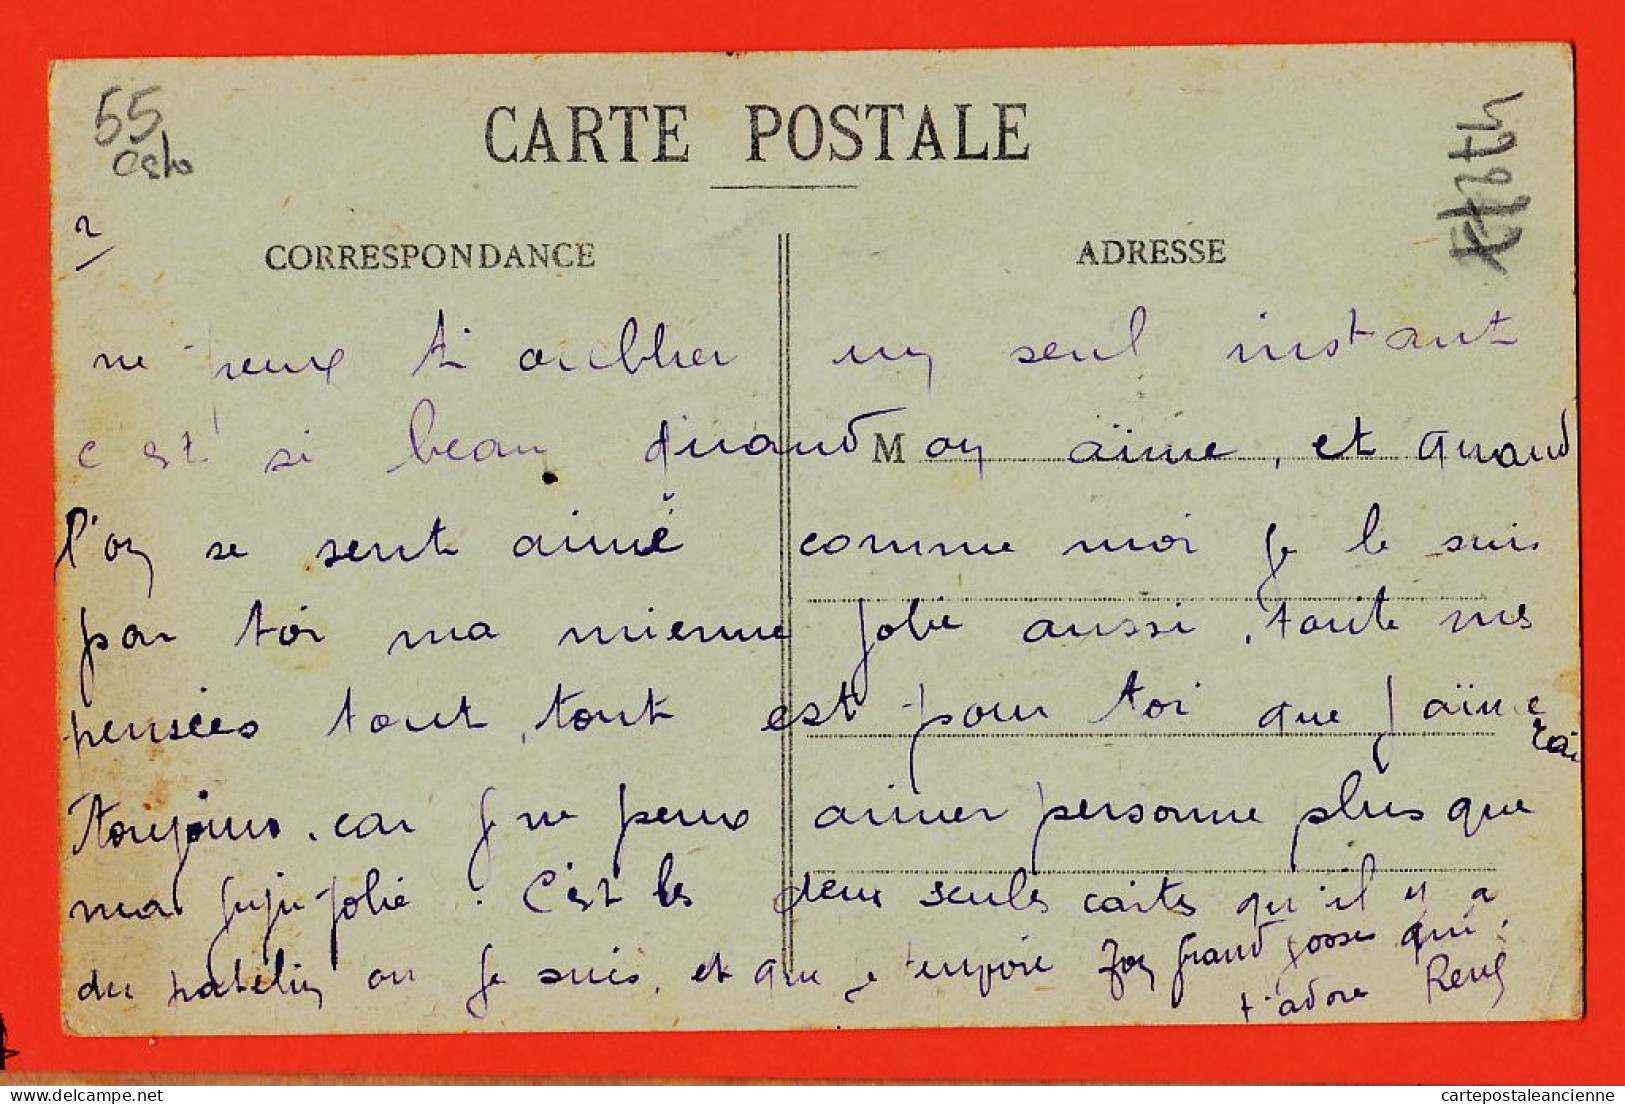 55
CARTE POSTALE
2
CORRESPONDANCE
ADRESSE
ne peux t'oublier un seul instant
c'est si beau quand M on aïme, et quand
l'on se sent aimé comme moi je le suis
par toi ma mienne jolie aussi, toute mes
pensées tout, tout est pour toi que j'aïme
rai
toujours, car je ne peux aimer personne plus que
ma juju jolie. C'est les deux seules cartes qu'il y a
du patelin ou je suis, et que je t'envoie Ton grand gosses qui
t'adore René
delcampe.net
cartepostaleancienne